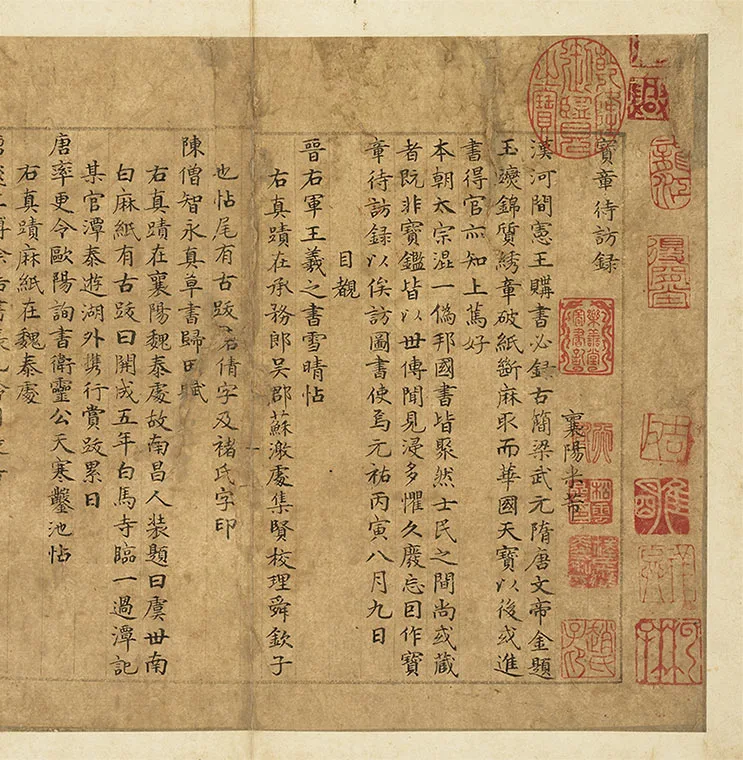 乾隆御覽之寶
寶章待訪録
襄陽米芾
漢河間憲王購書必録古簡梁武元隋唐文帝金題
玉躞錦質綉章破紙斷麻取而華國天寶以後或進
書得官亦知上篤好
本朝太宗混一僞邦國書皆聚然士民之間尚或藏
者既非寶鑑皆以世傳聞見浸多懼久廢忘囙作寶
章待訪録以俟訪圖書使焉元祐丙寅八月九日
目覩
晉右軍王羲之書雪晴帖
右真蹟在承務郎吴郡蘇激處集賢校理舜欽子
也帖尾有古跋君倩字及褚氏字印
陳僧智永真草書歸田賦
右真蹟在襄陽魏泰處故南昌人装題曰虞世南
白麻紙有古跋曰開成五年白馬寺臨一過潭記
某官潭泰遊湖外携行賞跋累日
唐率更令歐陽詢書衛靈公天寒鑿池帖
右真蹟麻紙在魏泰處